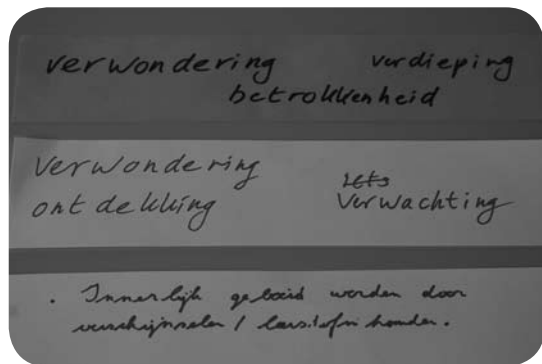 verwondering verdieping
betrokkenheid
Verwondering
ontdekking
Iets
Verwachting
. Innerlijk geboeid worden door
verschijnselen /